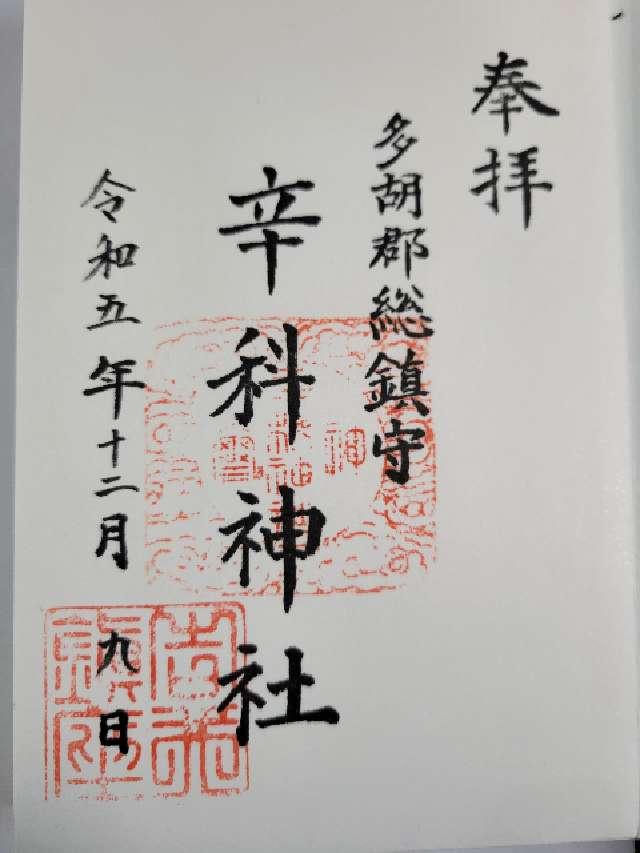 奉拝
多胡郡総鎮守
辛科神社
令和五年十二月九日